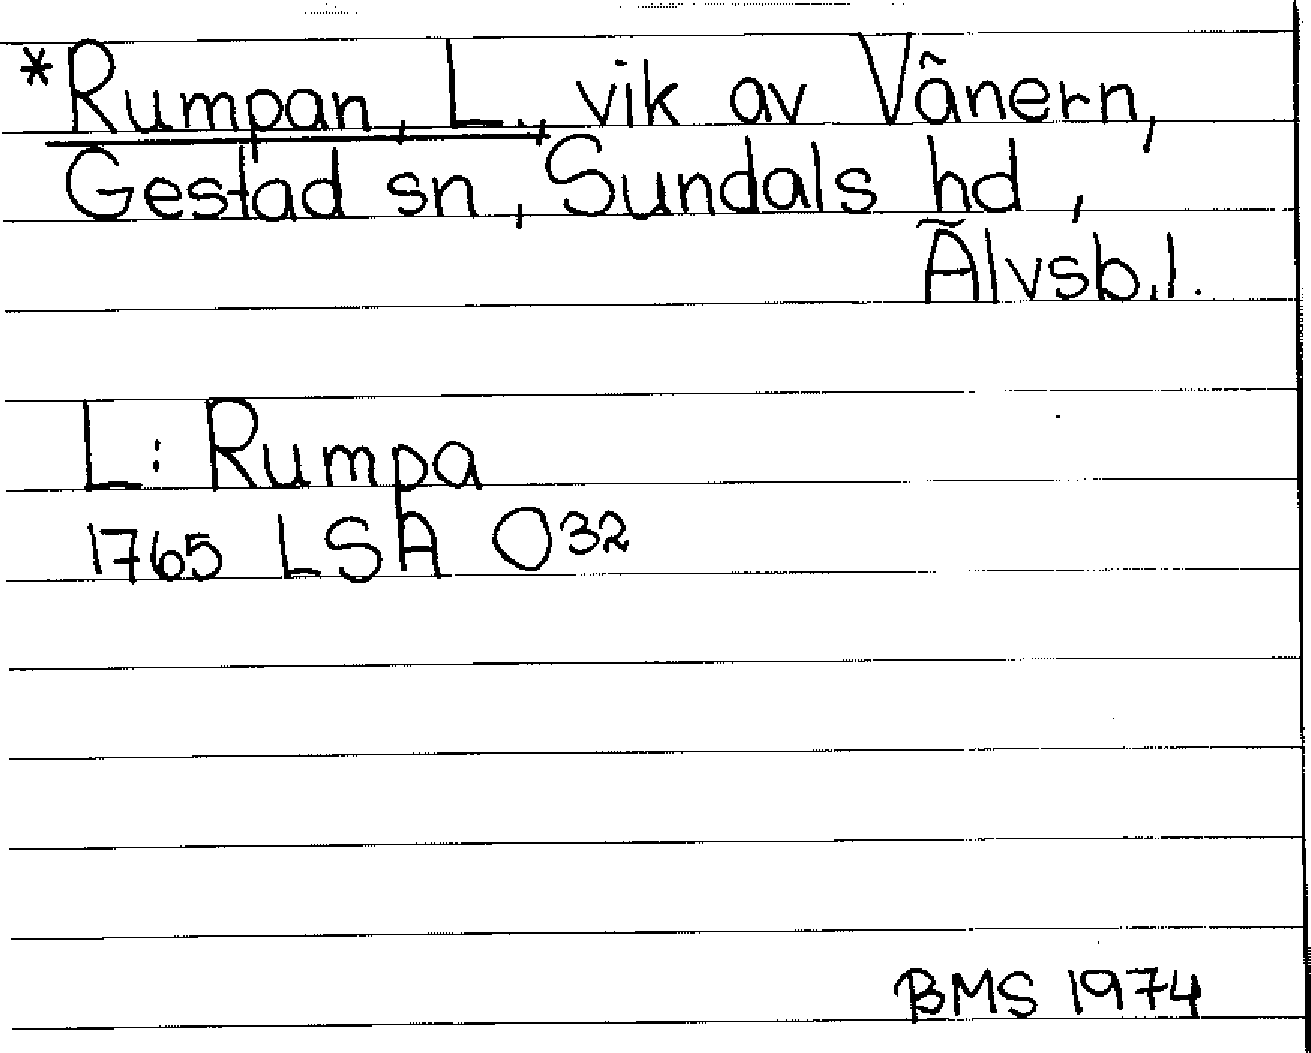 *Rumpan, L., vik av Vänern,
Gestad sn, Sundals hd,
Älvsb.l.
L: Rumpa
1765 LSA O32
BMS 1974